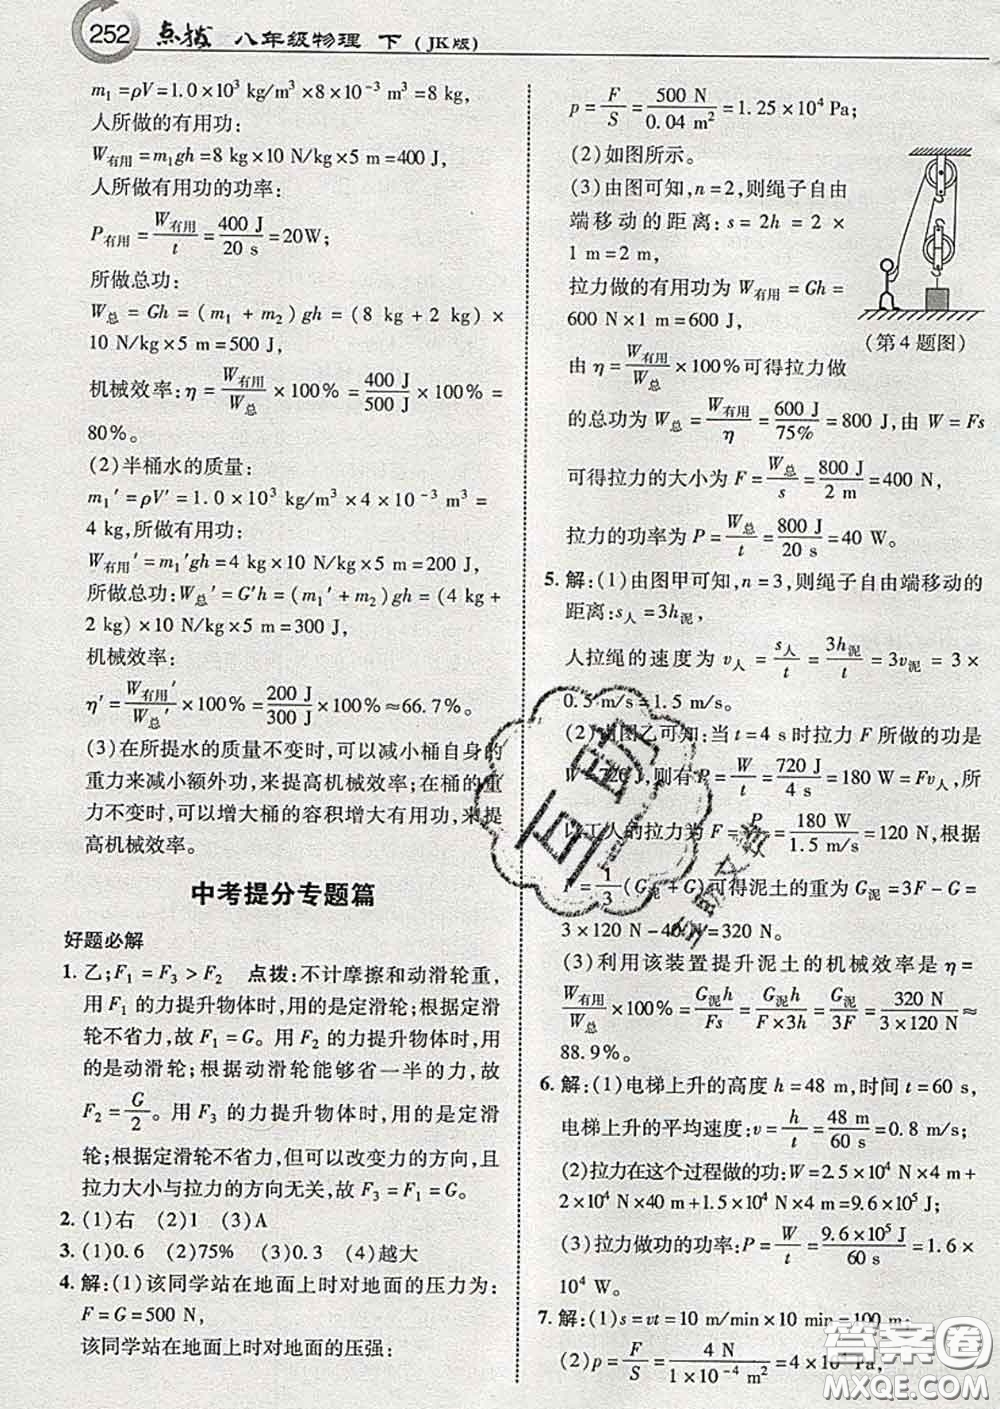 252 点拨 八年级物理 下 (JK版)
m₁=ρV=1.0×10³ kg/m³×8×10⁻³ m³=8 kg,
人所做的有用功:
W有用=m₁gh=8 kg×10 N/kg×5 m=400 J,
人所做有用功的功率:
P有用=W有用/t=400 J/20 s=20W;
所做总功:
W总=Gh=(m₁+m₂)gh=(8 kg+2 kg)×
10 N/kg×5 m=500 J,
机械效率:η=W有用/W总×100%=400 J/500 J×100%=
80%。
(2)半桶水的质量:
m₁′=ρV′=1.0×10³ kg/m³×4×10⁻³ m³=
4 kg,所做有用功:
W有用′=m₁′gh=4 kg×10 N/kg×5 m=200 J,
所做总功:W总′=G′h=(m₁′+m₂)gh=(4 kg+
2 kg)×10 N/kg×5 m=300 J,
机械效率:
η′=W有用′/W总′×100%=200 J/300 J×100%≈66.7%。
(3)在所提水的质量不变时,可以减小桶自身的
重力来减小额外功,来提高机械效率;在桶的重
力不变时,可以增大桶的容积增大有用功,来提
高机械效率。
中考提分专题篇
好题必解
1. 乙;F₁=F₃>F₂ 点拨:不计摩擦和动滑轮重,
用F₁的力提升物体时,用的是定滑轮;根据定滑
轮不省力,故F₁=G。用F₂的力提升物体时,用
的是动滑轮;根据动滑轮能够省一半的力,故
F₂=G/2。用F₃的力提升物体时,用的是定滑
轮;根据定滑轮不省力,但可以改变力的方向,且
拉力大小与拉力的方向无关,故F₃=F₁=G。
2. (1)右 (2)1 (3)A
3. (1)0.6 (2)75% (3)0.3 (4)越大
4. 解:(1)该同学站在地面上时对地面的压力为:
F=G=500 N,
该同学站在地面上时对地面的压强:
p=F/S=500 N/0.04 m²=1.25×10⁴ Pa;
(2)如图所示。
(3)由图可知,n=2,则绳子自由
端移动的距离:s=2h=2×
1 m=2 m;
拉力做的有用功为W有用=Gh=
600 N×1 m=600 J,
(第4题图)
由η=W有用/W总×100%可得拉力做
的总功为W总=W有用/η=600 J/75%=800 J,由W=Fs
可得拉力的大小为F=W总/s=800 J/2 m=400 N,
拉力的功率为P=W总/t=800 J/20 s=40 W。
5. 解:(1)由图甲可知,n=3,则绳子自由端移动的
距离:s人=3h泥,
人拉绳的速度为v人=s人/t=3h泥/t=3v泥=3×
0.5 m/s=1.5 m/s。
(2)由图乙可知:当t=4 s时拉力F所做的功是
W=720 J,则有P=W/t=720 J/4 s=180 W=Fv人,所
以工人的拉力为F=P/v人=180 W/1.5 m/s=120 N,根据
F=1/3(G泥+G)可得泥土的重为G泥=3F-G=
3×120 N-40 N=320 N。
(3)利用该装置提升泥土的机械效率是η=
W有用/W总×100%=G泥h/Fs=G泥h/F×3h=G泥/3F=320 N/3×120 N≈
88.9%。
6. 解:(1)电梯上升的高度h=48 m,时间t=60 s,
电梯上升的平均速度:v=h/t=48 m/60 s=0.8 m/s;
(2)拉力在这个过程做的功:W=2.5×10⁴ N×4 m+
2×10⁴ N×40 m+1.5×10⁴ N×4 m=9.6×10⁵ J;
(3)拉力做功的功率:P=W/t=9.6×10⁵ J/60 s=1.6×
10⁴ W。
7. 解:(1)s=vt=10 m/min×10 min=100 m;
(2)p=F/S=4 N/1×10⁻⁴ m²=4×10⁴ Pa,
互助
互助文督
答案圈
MXQE.COM